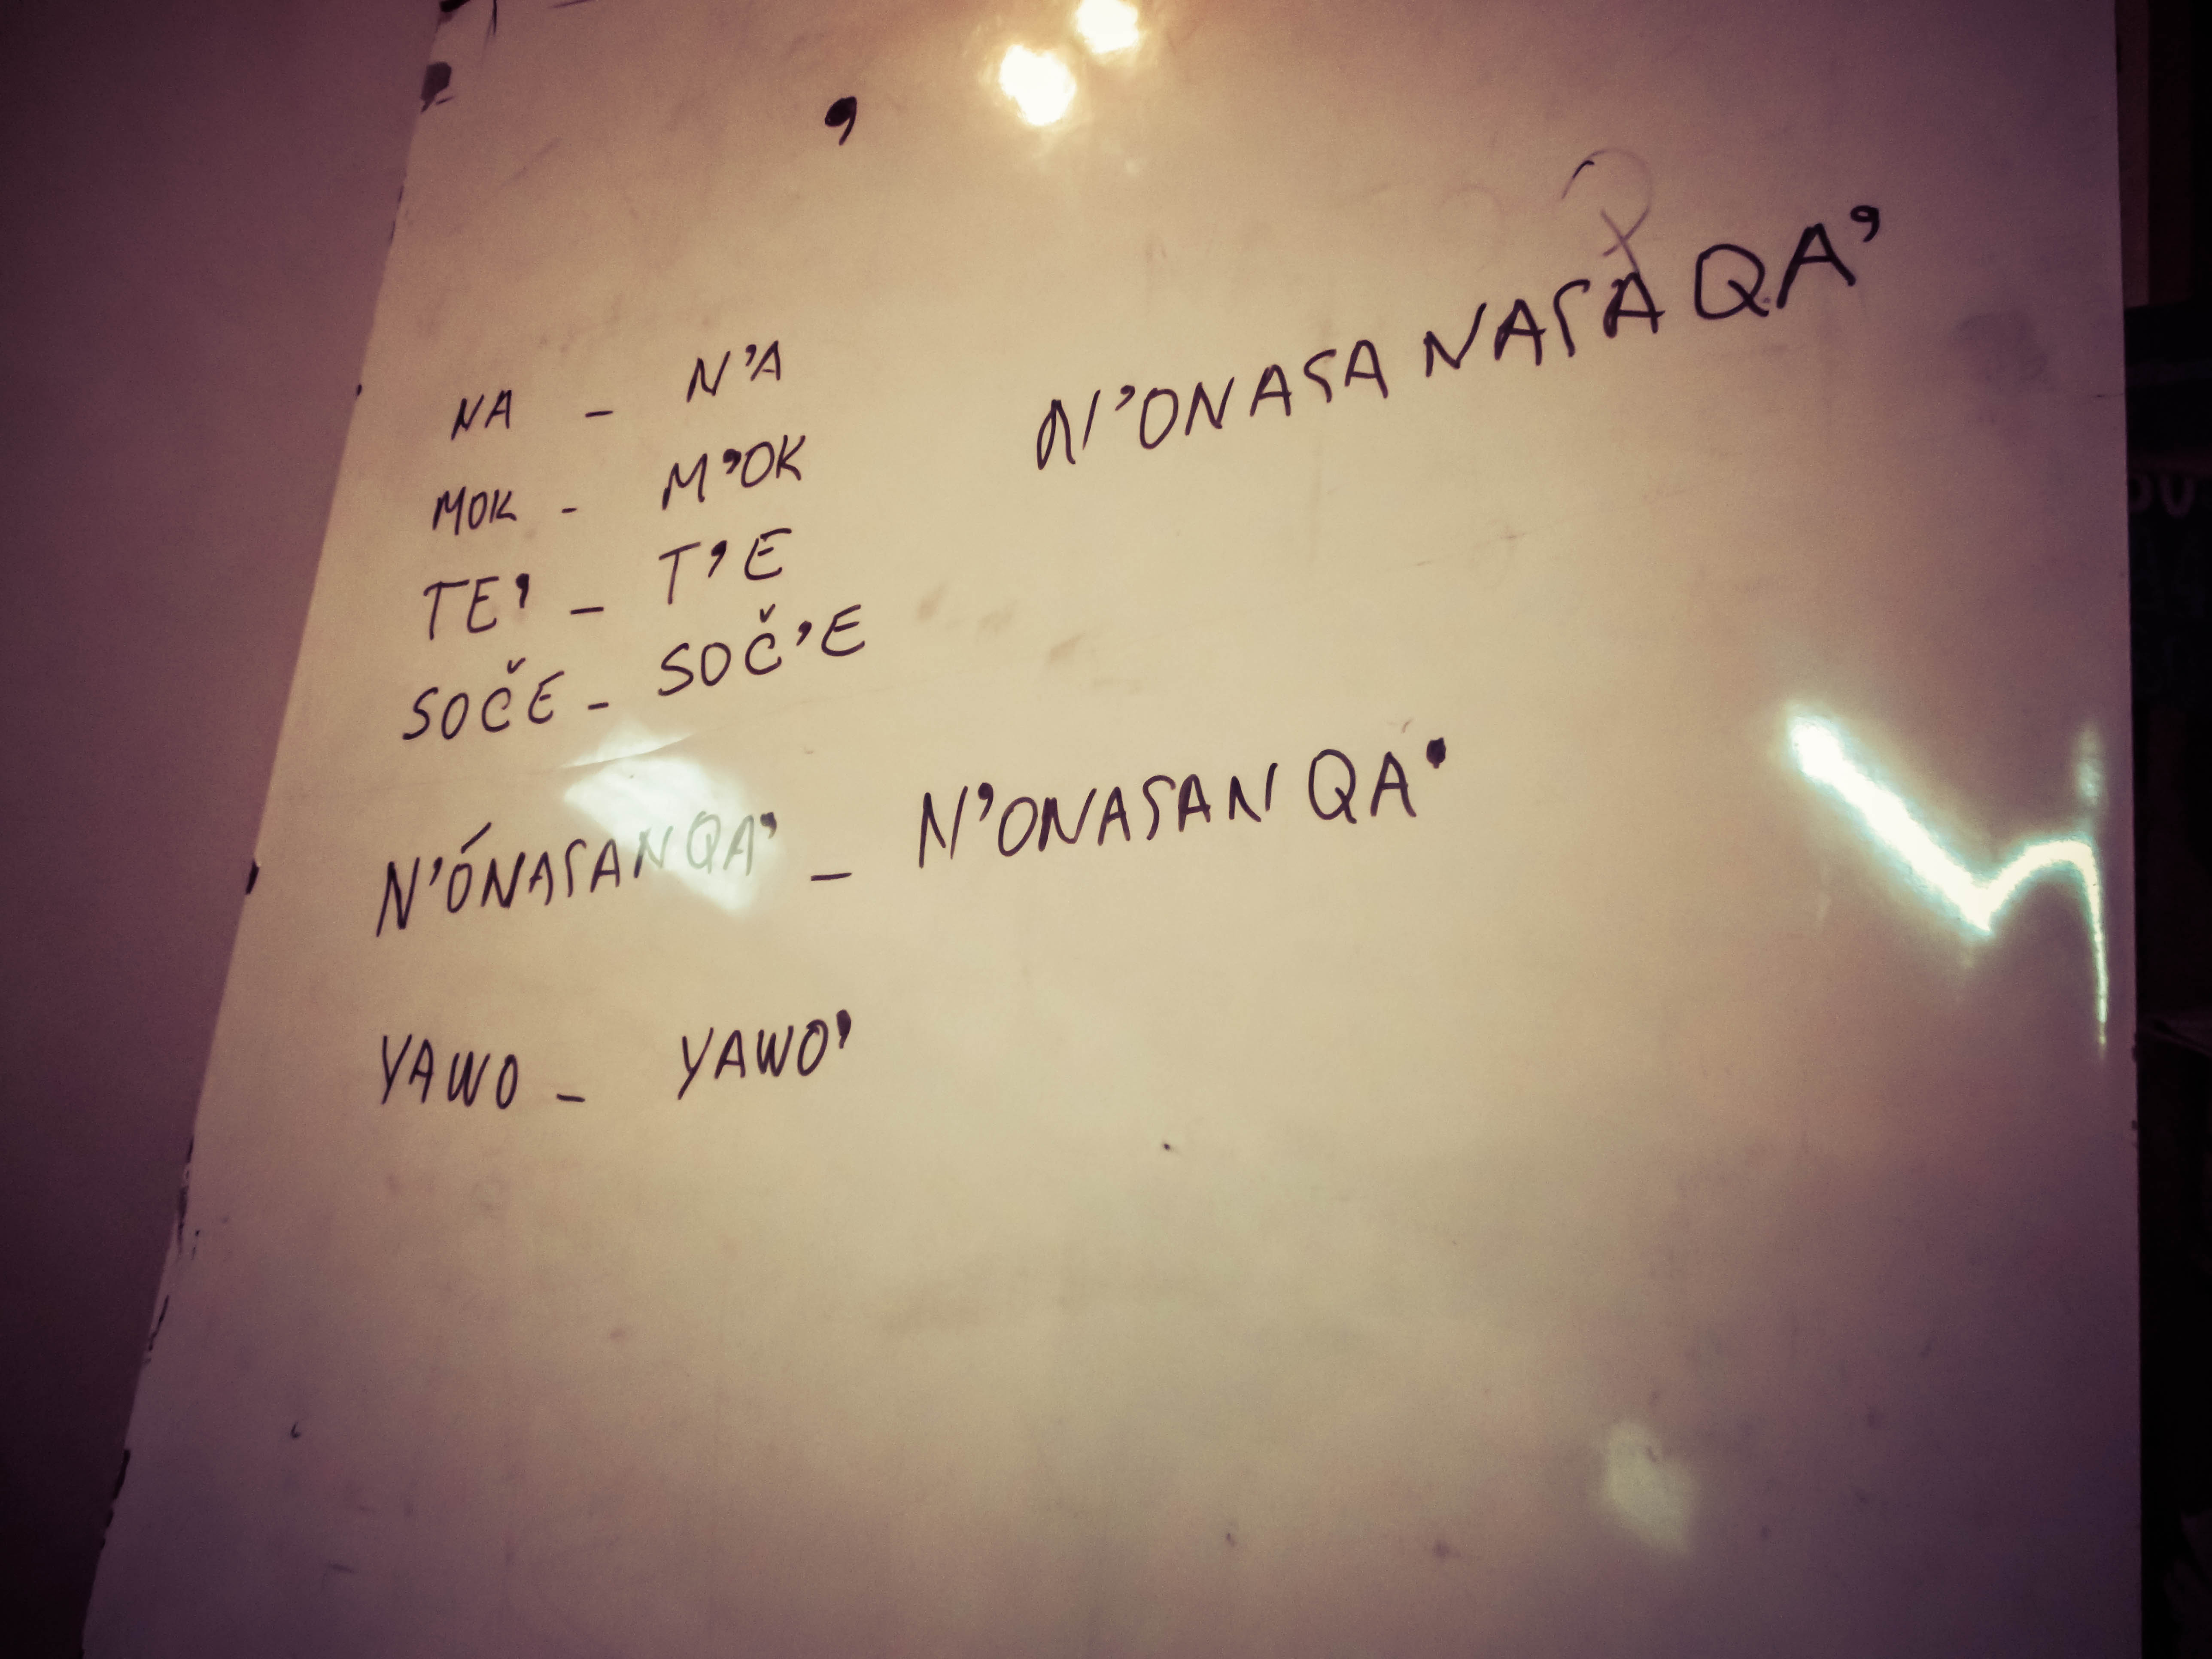 ’
NA - N’A
MOK - M’OK
TE’ - T’E
SOČE - SOČ’E
N’ONASA NASA QA’
N’ÓNASAN QA’ - N’ONASAN QA’
YAWO - YAWO’